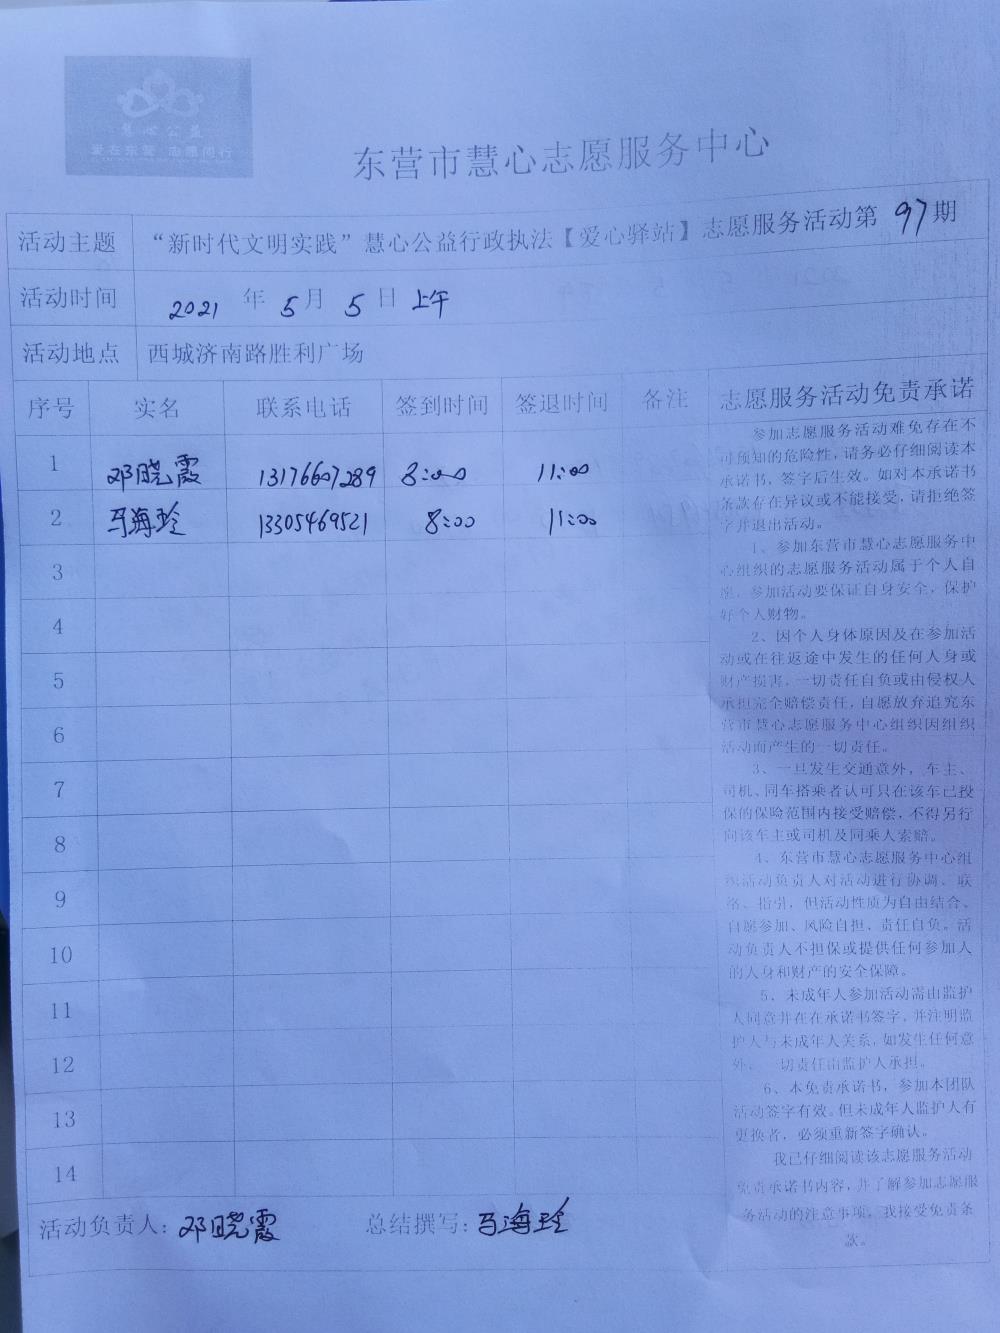 慧心公益
爱在东营 志愿同行
东营市慧心志愿服务中心
活动主题 “新时代文明实践”慧心公益行政执法【爱心驿站】志愿服务活动第 97 期
活动时间 2021 年 5 月 5 日 上午
活动地点 西城济南路胜利广场
序号 实名 联系电话 签到时间 签退时间 备注
1 邓晓霞 13176607289 8:00 11:00
2 马海玲 13305469521 8:00 11:00
3
4
5
6
7
8
9
10
11
12
13
14
志愿服务活动免责承诺
参加志愿服务活动难免存在不
可预知的危险性,请务必仔细阅读本
承诺书,签字后生效。如对本承诺书
条款存在异议或不能接受,请拒绝签
字并退出活动。
1、参加东营市慧心志愿服务中
心组织的志愿服务活动属于个人自
愿,参加活动要保证自身安全,保护
好个人财物。
2、因个人身体原因及在参加活
动或在往返途中发生的任何人身或
财产损害,一切责任自负或由侵权人
承担完全赔偿责任,自愿放弃追究东
营市慧心志愿服务中心组织因组织
活动而产生的一切责任。
3、一旦发生交通意外,车主、
司机、同车搭乘者认可只在该车已投
保的保险范围内接受赔偿,不得另行
向该车主或司机及同乘人索赔。
4、东营市慧心志愿服务中心组
织活动负责人对活动进行协调、联
络、指引,但活动性质为自由结合、
自愿参加、风险自担,责任自负。活
动负责人不担保或提供任何参加人
的人身和财产的安全保障。
5、未成年人参加活动需由监护
人同意并在在承诺书签字,并注明监
护人与未成年人关系,如发生任何意
外,一切责任由监护人承担。
6、本免责承诺书,参加本团队
活动签字有效。但未成年人监护人有
更换者,必须重新签字确认。
我已仔细阅读该志愿服务活动
免责承诺书内容,并了解参加志愿服
务活动的注意事项,我接受免责条
款。
活动负责人:邓晓霞 总结撰写:马海玲